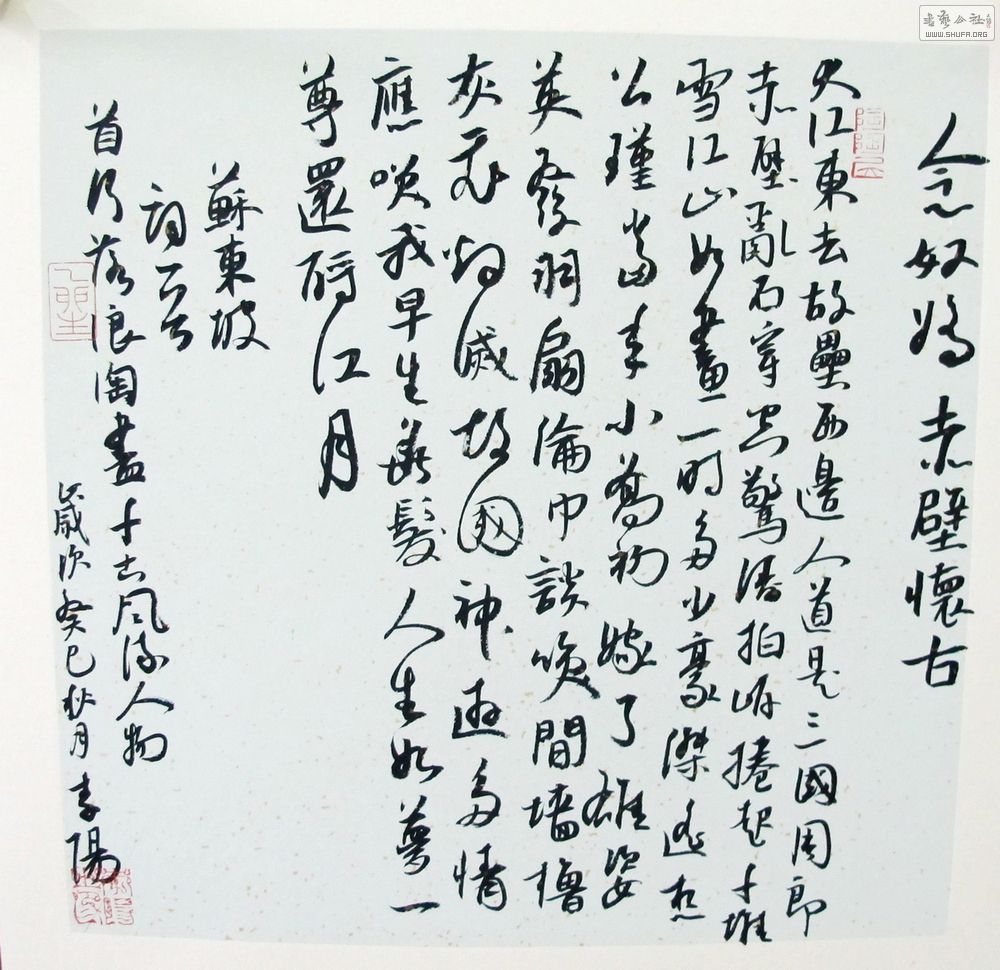 念奴嬌 赤壁懷古
大江東去故壘西邊人道是三國周郎
赤壁亂石穿空驚濤拍岸捲起千堆
雪江山如畫一時多少豪傑遙想
公瑾當年小喬初嫁了雄姿
英發羽扇綸巾談笑間墻櫓
灰飛烟滅故國神遊多情
應笑我早生華髮人生如夢一
尊還酹江月
蘇東坡
詞一首
首行落浪淘盡千古風流人物
歲次癸巳秋月李陽
書藝公社
WWW.SHUFA.ORG